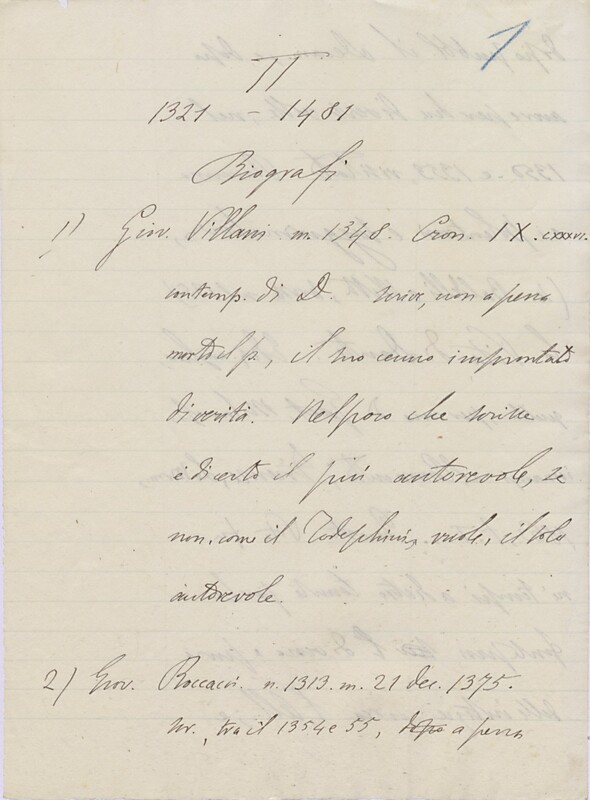 1
II
1321 – 1481
Biografi
1) Giov. Villani m. 1348. Cron. IX. CXXXVI.
contemp. di D. scrive, non a pena
morto il p., il suo cenno improntato
di verità. Nel poco che scrive
è di certo il più autorevole, se
non, come il Todeschini, vuole, il solo
autorevole.
2) Giov. Boccacci. n. 1313. m. 21 dec. 1375.
scr., tra il 1354 e 55, dopo a pena